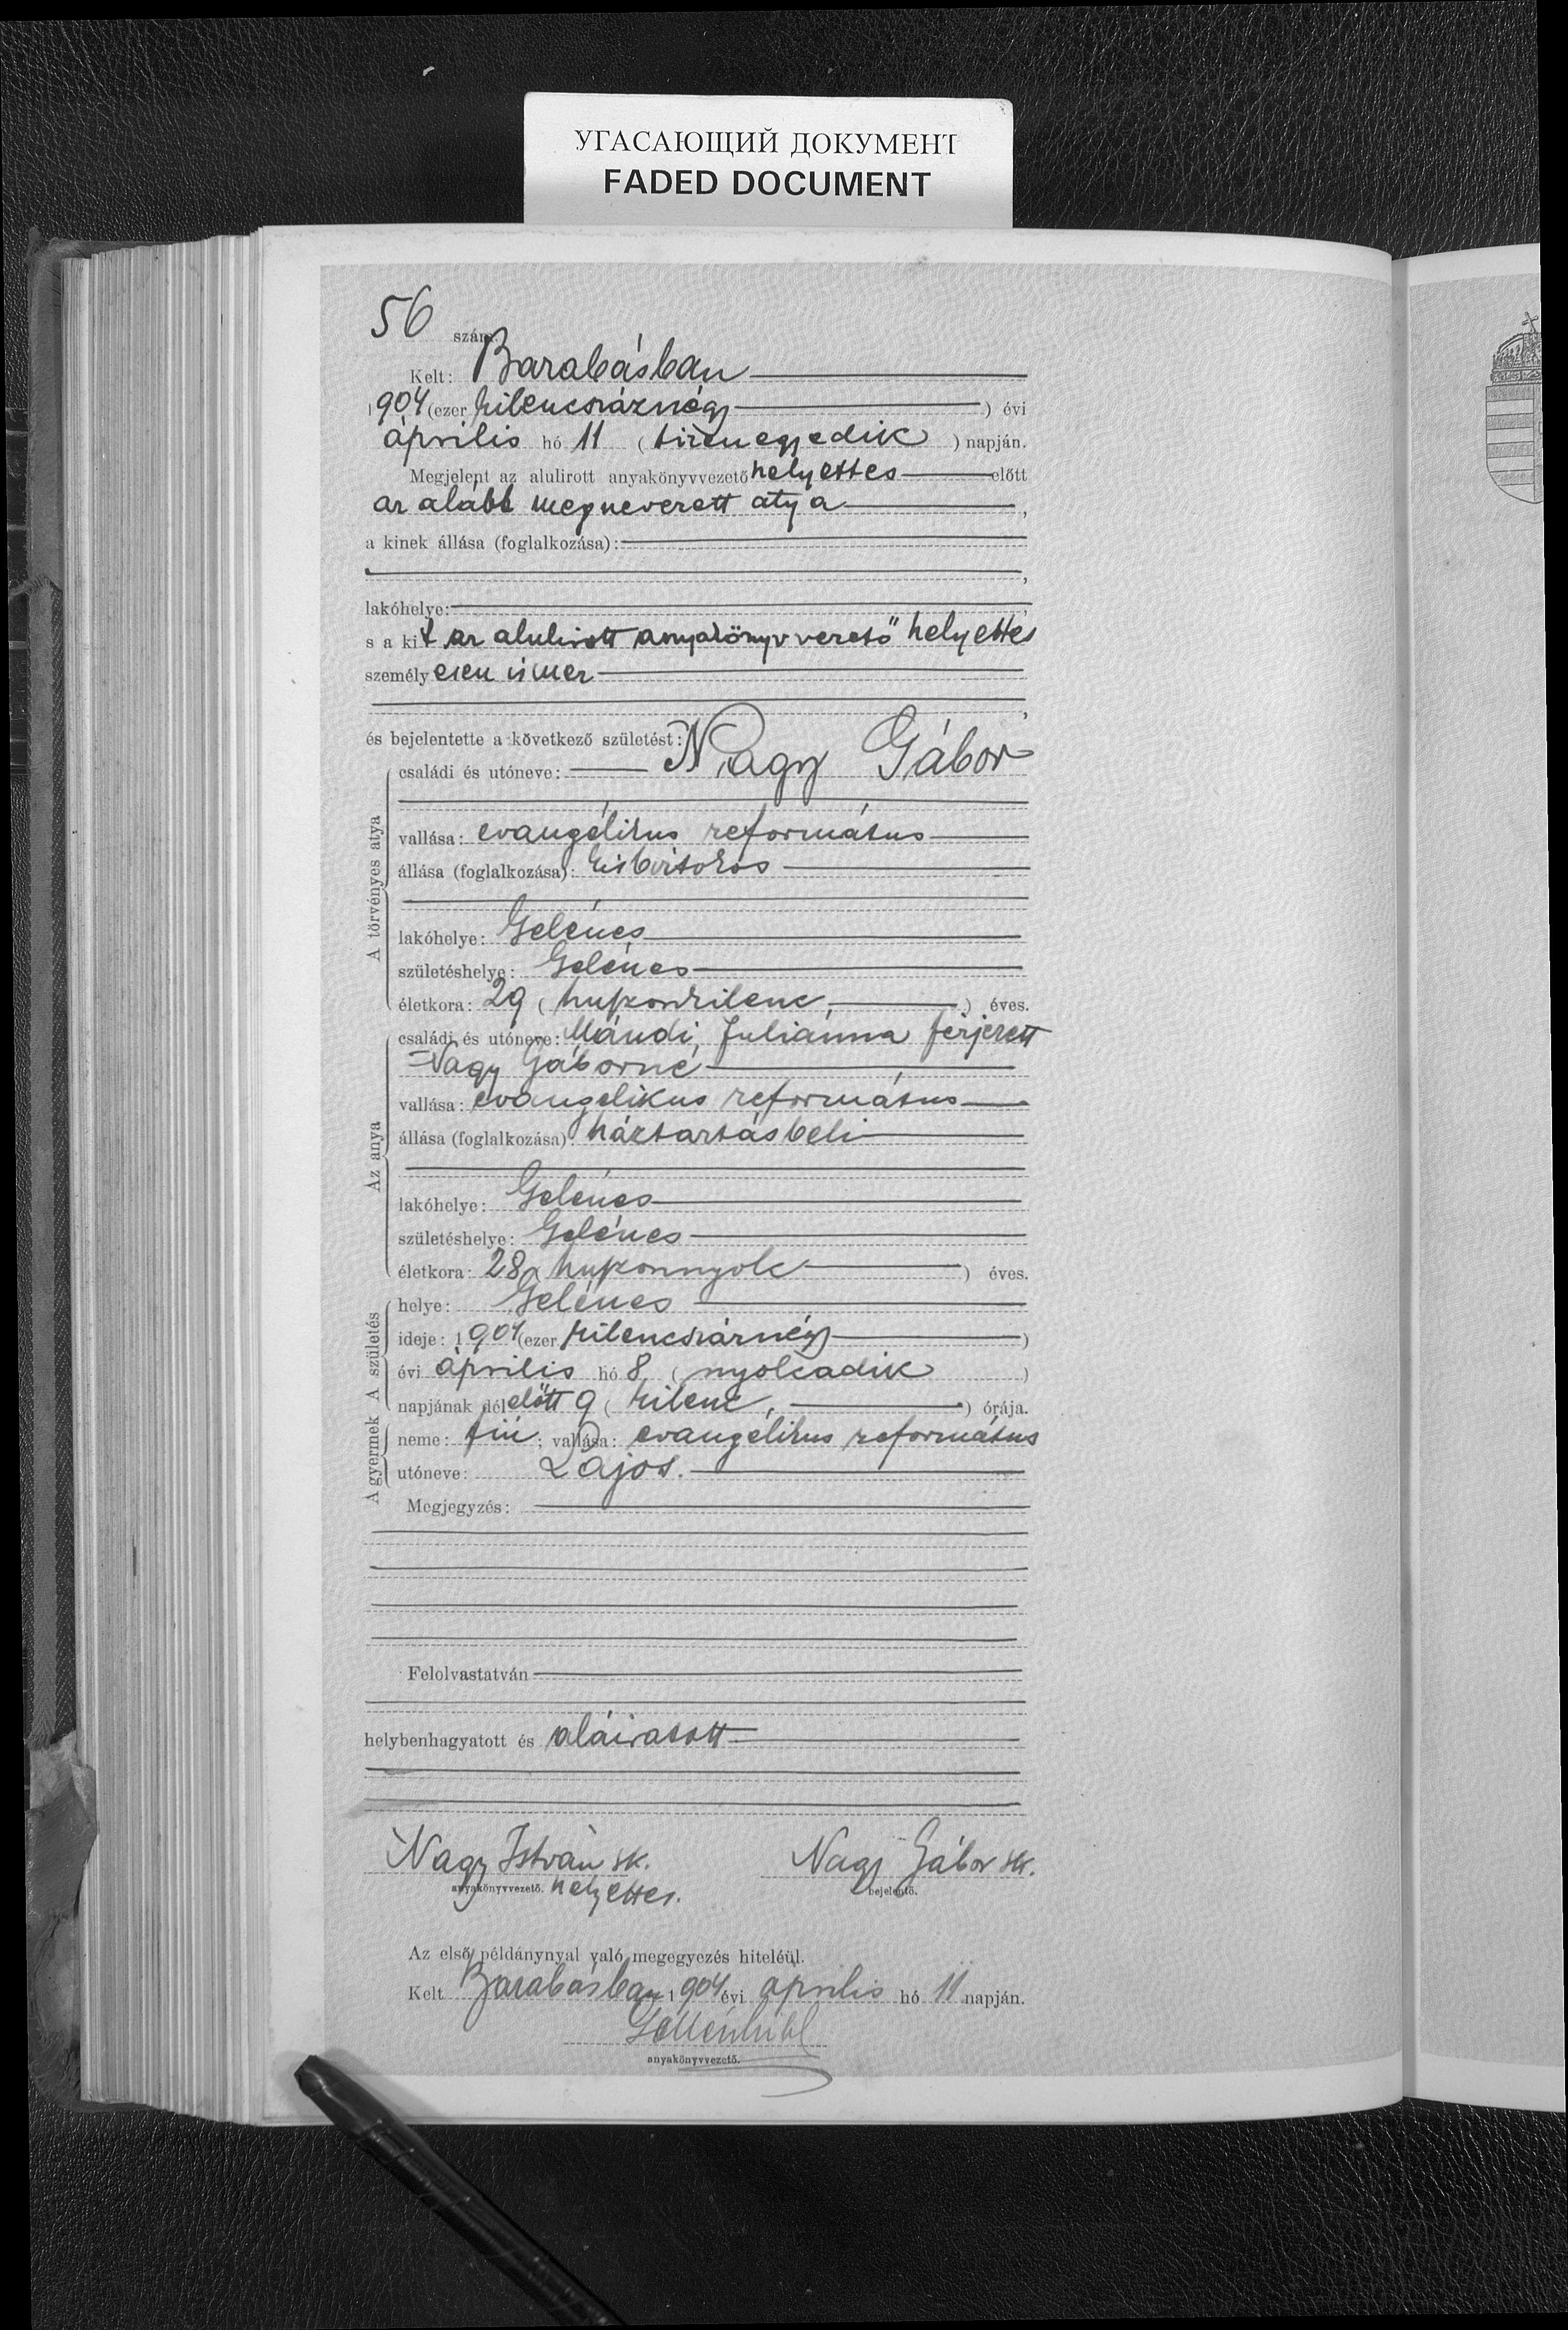 УГАСАЮЩИЙ ДОКУМЕНТ
FADED DOCUMENT
56 szám.
Kelt: Barabásban
1904 (ezer kilencszáznégy) évi
április hó 11 (tizenegyedik) napján.
Megjelent az alulirott anyakönyvvezető helyettes előtt
az alább megnevezett atya,
a kinek állása (foglalkozása):
,
lakóhelye:
s a kit az alulirott anyakönyvvezető helyettes
személyesen ismer
,
és bejelentette a következő születést:
A törvényes atya
családi és utóneve: Nagy Gábor
vallása: evangélikus református
állása (foglalkozása): kisbirtokos
lakóhelye: Gelénes
születéshelye: Gelénes
életkora: 29 (huszonkilenc) éves.
Az anya
családi és utóneve: Mándi Juliánna férjezett
Nagy Gáborné
vallása: evangelikus református
állása (foglalkozása) háztartásbeli
lakóhelye: Gelénes
születéshelye: Gelénes
életkora: 28 (huszonnyolc) éves.
A születés
helye: Gelénes
ideje: 1904 (ezer kilencszáznégy)
évi április hó 8 (nyolcadik)
napjának délelőtt 9 (kilenc) órája.
A gyermek
neme: fiú; vallása: evangélikus református
utóneve: Lajos.
Megjegyzés:
Felolvastatván
helybenhagyatott és aláiratott
Nagy István sk. Nagy Gábor sk.
anyakönyvvezető. helyettes. bejelentő.
Az első példánynyal való megegyezés hiteléül.
Kelt Barabásban 1904 évi április hó 11 napján.
anyakönyvvezető.